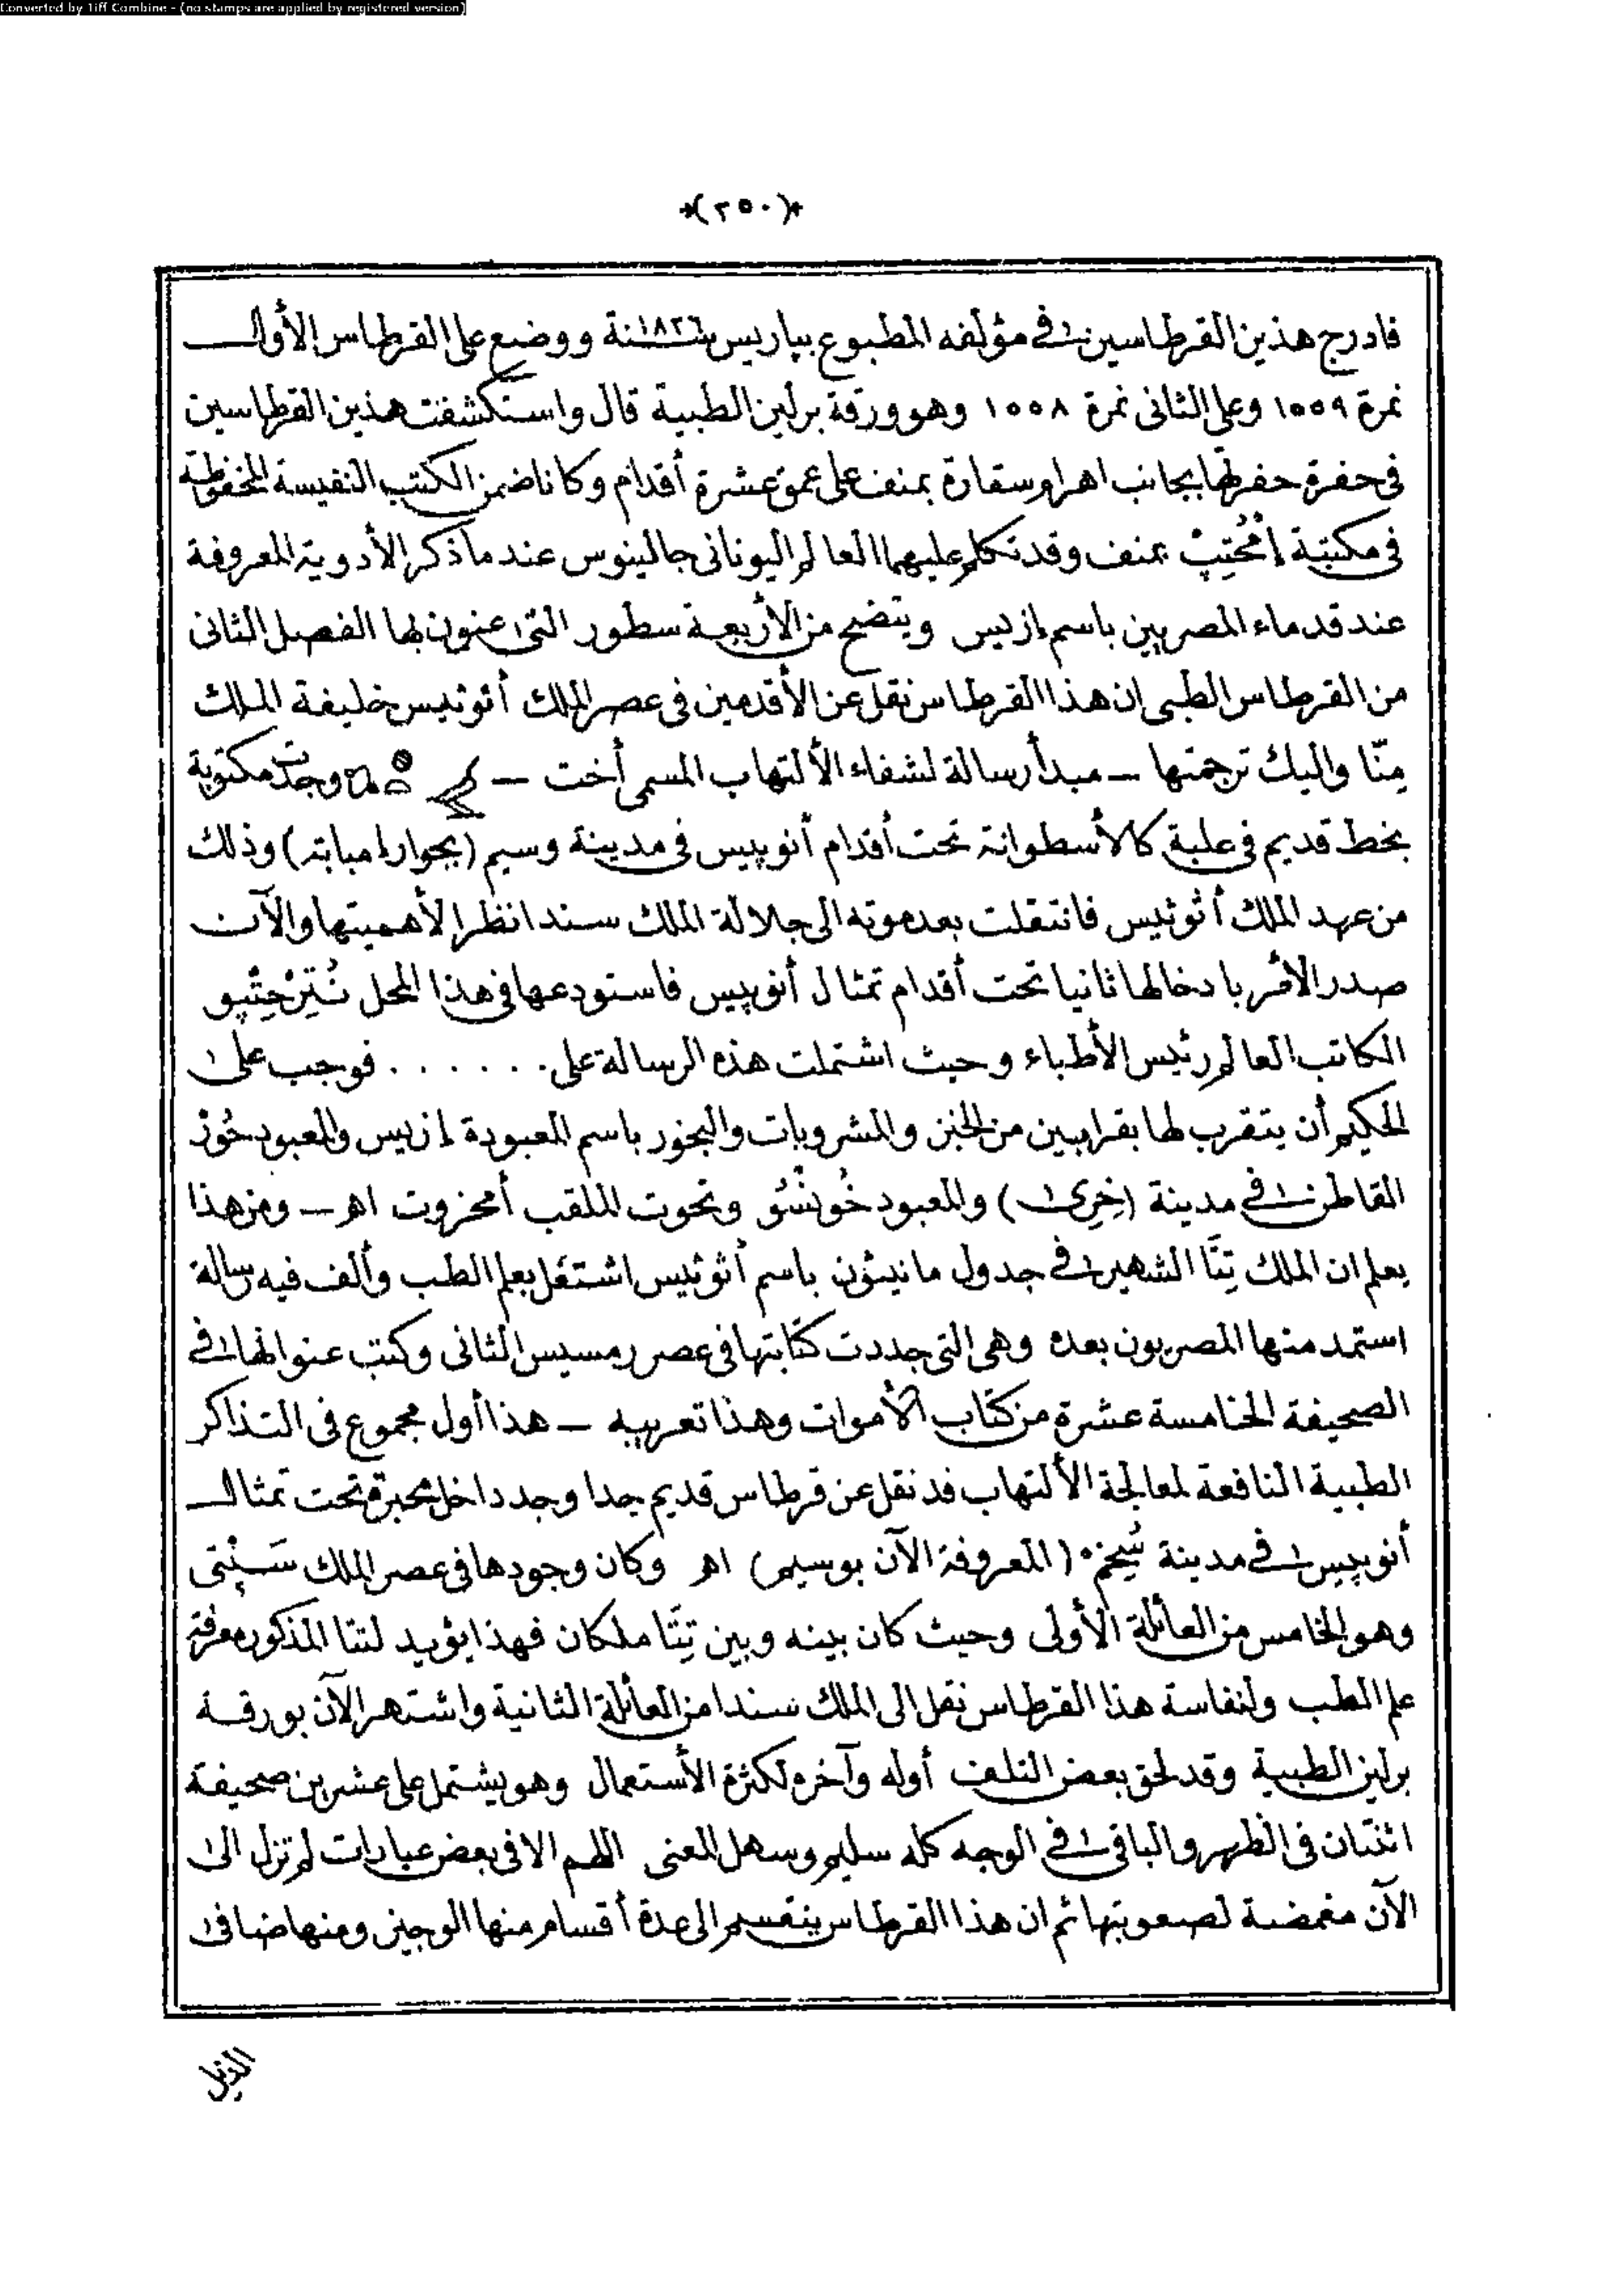 Converted by Tiff Combine - (no stamps are applied by registered version)
*(٢٥٠)*
فادرج هذين القرطاسين فى مؤلفه المطبوع بباريس سنة ١٨٢٦ ووضع على القرطاس الأول
نمرة ١٥٥٩ وعلى الثانى نمرة ١٥٥٨ وهو ورقة برلين الطبية قال واستكشفت هذين القرطاسين
فى حفرة حفرتها بجانب اهرام سقارة بمنف على عمق عشرة أقدام وكانا ضمن الكتب النفيسة المحفوظة
فى مكتبة إمْحُتِبْ بمنف وقد تكلم عليهما العالم اليونانى جالينوس عند ما ذكر الأدوية المعروفة
عند قدماء المصريين باسم إزيس ويتضح من الأربعة سطور التى عنون بها الفصل الثانى
من القرطاس الطبى ان هذا القرطاس نقل عن الأقدمين فى عصر الملك أثوثيس خليفة الملك
مِنّا واليك ترجمتها – مبدأ رسالة لشفاء الألتهاب المسمى أخت – وجدت مكتوبة
بخط قديم فى علبة كالأسطوانة تحت أقدام أنوبيس فى مدينة وسيم (بجوار إمبابة) وذلك
من عهد الملك أثوثيس فانتقلت بعد موته الى جلالة الملك سندا نظرا لأهميتها والآن
صدر الأمر بادخالها ثانيا تحت أقدام تمثال أنوبيس فاستودعها فى هذا المحل نُتِرْحِتْبِو
الكاتب العالم رئيس الأطباء وحيث اشتملت هذه الرسالة على . . . . . . . فوجب على
الحكيم أن يتقرب لها بقرابين من الخبز والمشروبات والبخور باسم المعبودة إزيس والمعبود حُورْ
القاطن فى مدينة (خِرِى) والمعبود خُونْسُو وتحوت الملقب أمخروت اهـ – ومن هذا
يعلم ان الملك تِتَّا الشهير فى جدول مانيثون باسم أثوثيس اشتغل بعلم الطب وألف فيه رسالة
استمد منها المصريون بعده وهى التى جددت كتابتها فى عصر رمسيس الثانى وكتب عنوانها فى
الصحيفة الخامسة عشرة من كتاب الأموات وهذا تعريبه – هذا أول مجموع فى التذاكر
الطبية النافعة لمعالجة الألتهاب قد نقل عن قرطاس قديم جدا وجد داخل محبرة تحت تمثال
أنوبيس فى مدينة سُخِمْ (المعروفة الآن بوسيم) اهـ وكان وجودها فى عصر الملك سَپْتِى
وهو الخامس من العائلة الأولى وحيث كان بينه وبين تِتَا ملكان فهذا يؤيد لتتا المذكور معرفة
علم الطب ولنفاسة هذا القرطاس نقل الى الملك سندا من العائلة الثانية واشتهر الآن بورقة
برلين الطبية وقد لحق بعض التلف أوله وآخره لكثرة الأستعمال وهو يشتمل على عشرين صحيفة
اثنتان فى الظهر والباقى فى الوجه كله سليم وسهل المعنى اللهم الا فى بعض عبارات لم تزل الى
الآن مغمضة لصعوبتها ثم ان هذا القرطاس ينقسم الى عدة أقسام منها الوجيز ومنها ضافى
الذيل